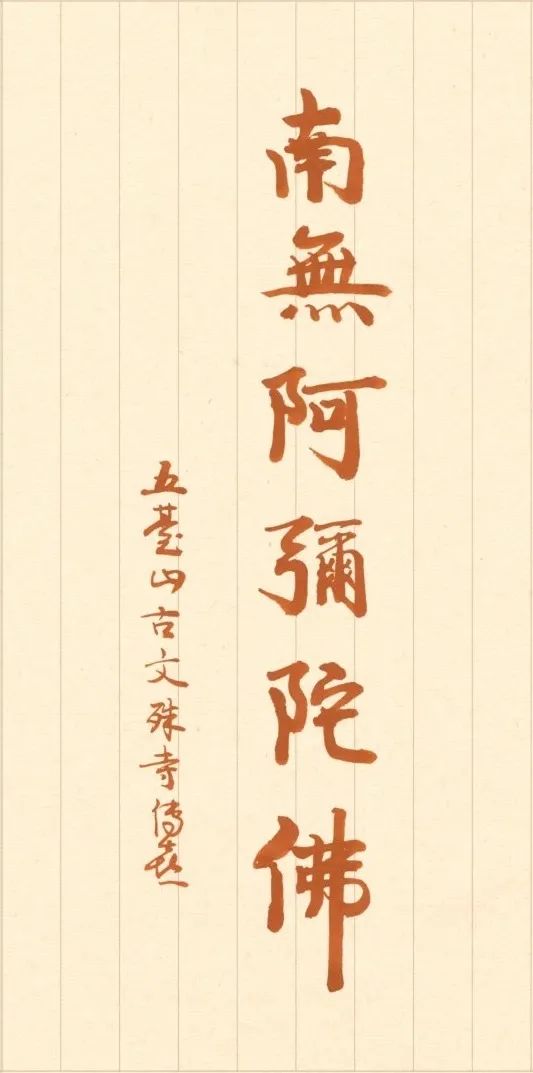 南無阿彌陀佛
五臺山古文殊寺傳喜